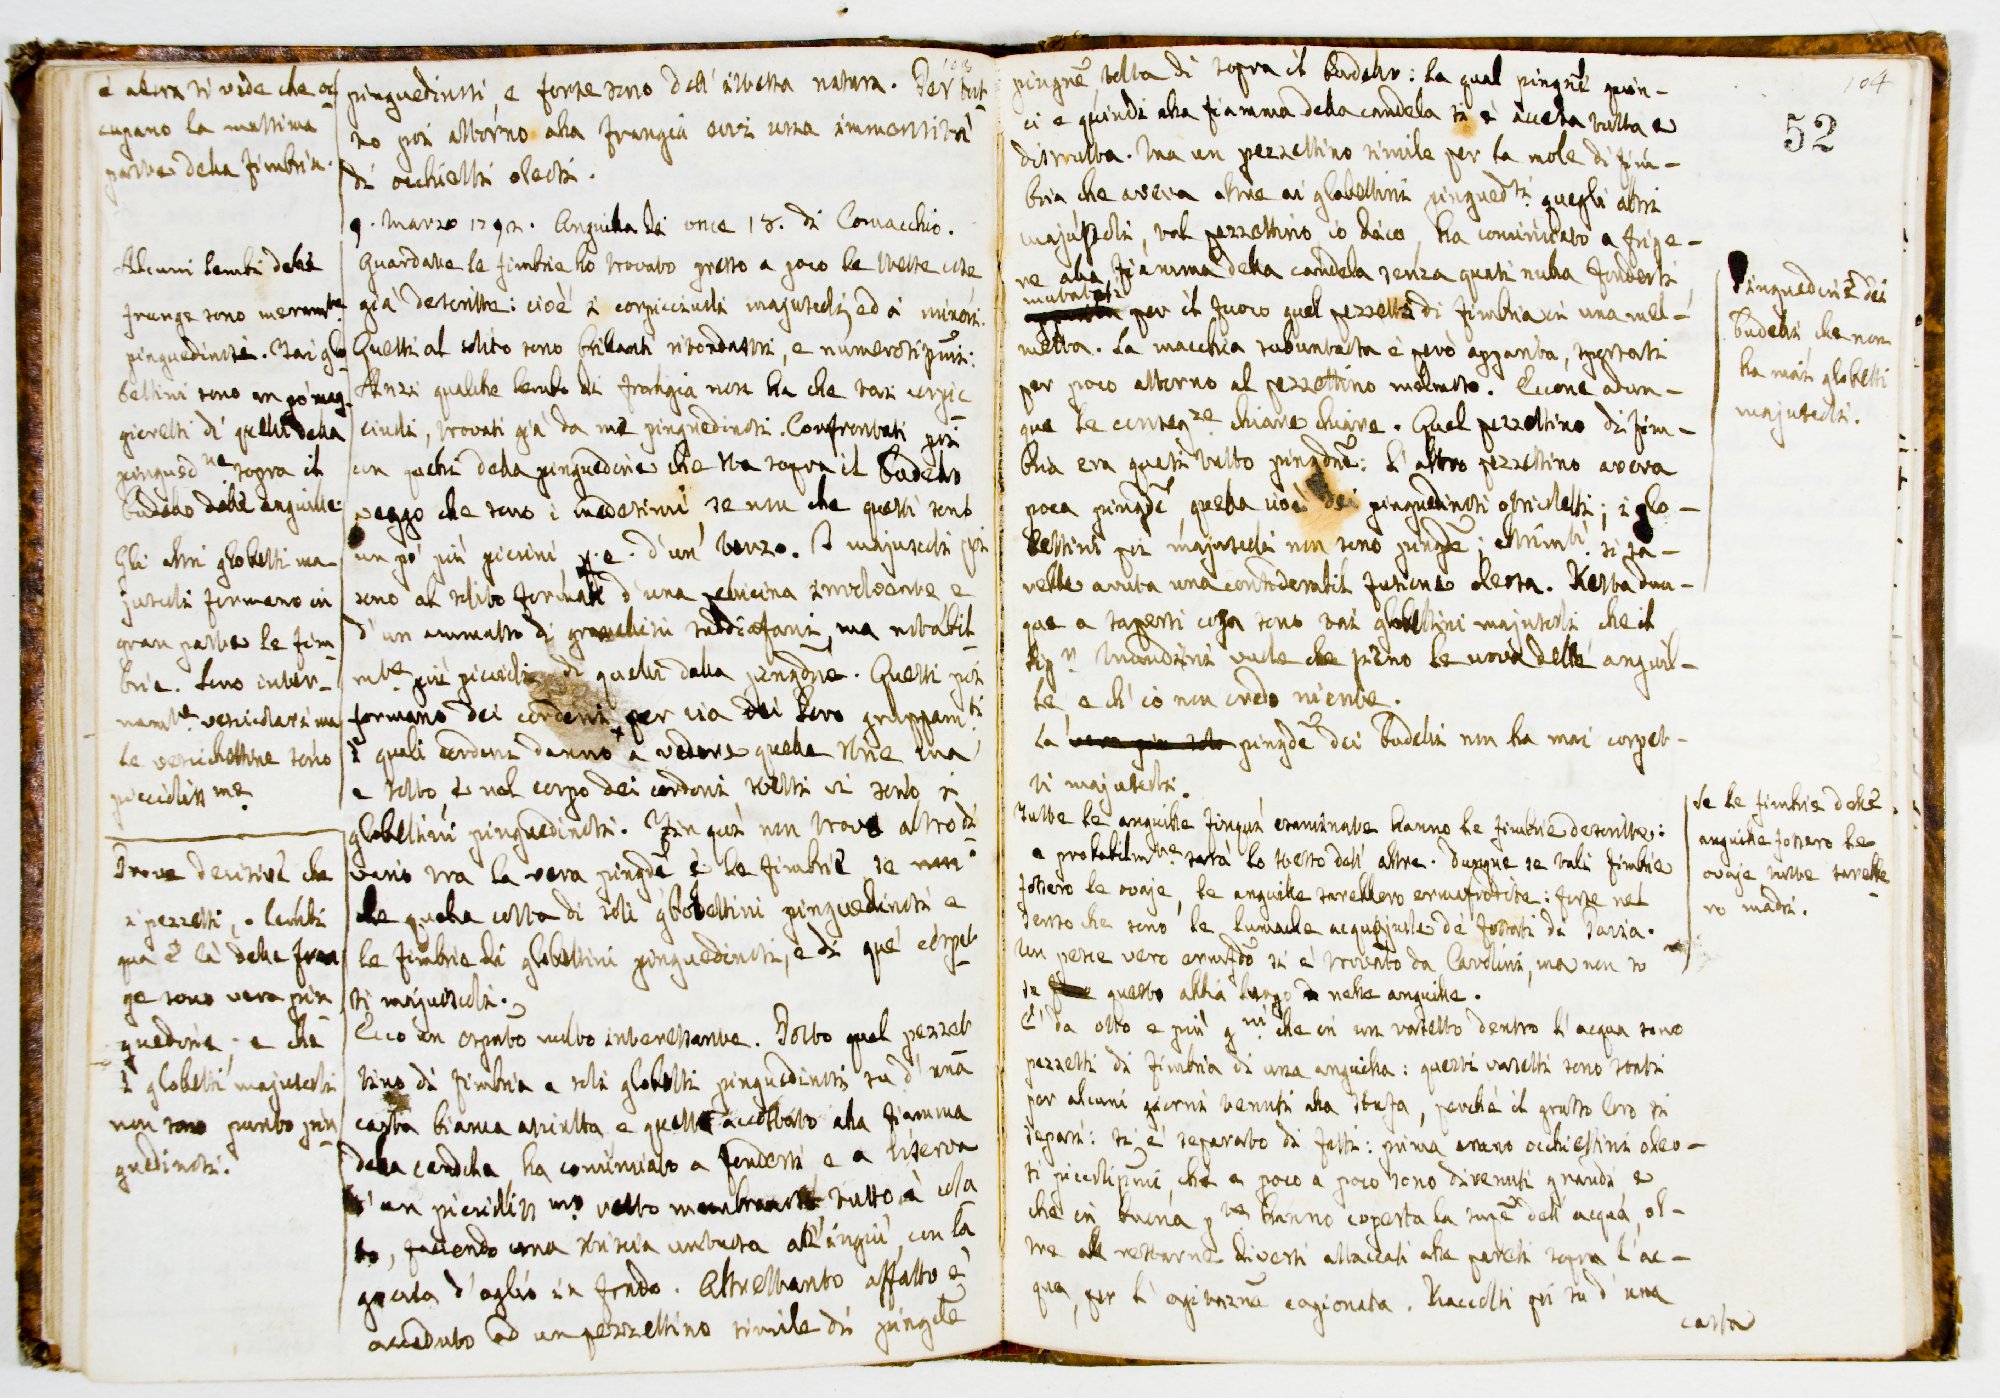 è allora si vede che oc
cupano la massima
parte della fimbria.
Alcuni lembi delle
frange sono meramte
pinguedinosi. Tai glo
bettini sono un pò mag
gioretti di quelli della
pingued.ne sopra il
budello delle anguille.
Gli altri globetti ma
juscoli formano in
gran parte le fim
brie. Sono inter
namte vescicolari ma
le vescichettine sono
piccoliss.me
Prove decisive che
i pezzetti, o lembi
qua e là delle fran
ge sono vera pin
guedine; e che
i globetti majuscoli
non sono punto pin
guedinosi.
103
pinguedinosi, e forse sono dell'istessa natura. Per tut
to poi attorno alla frangia evvi una immensità
di occhietti oleosi.
9. Marzo 1792. Anguilla di once 18. di Comacchio.
Guardate le fimbrie ho trovato presso a poco le stesse cose
già descritte: cioè i corpicciuoli majuscoli, ed i minori.
Questi al solito sono brillanti ritondastri, e numerosissimi:
Anzi qualche lembo di frangia non ha che tai corpic
ciuoli, trovati già da me pinguedinosi. Confrontati poi
con quelli della pinguedine che sta sopra il budello
veggo che sono i medesimi, se non che questi sono
un pò più piccini p.e. d'un terzo. I majuscoli poi
sono al solito formati d'una pellicina involvente e
d'un ammasso di granellini semidiafani, ma notabil
mte più piccioli di quelli della pingdne. Questi poi
formano dei cordoni per via dei loro gruppamti
i quali cordoni danno a vedere quelle strie qua
e sotto, e nel corpo dei cordoni stessi vi sono i
globettini pinguedinosi. Fin quì non trovo altro di
vario tra la vera pingdne e le fimbrie, se non
che quella costa di soli globettini pinguedinosi e
le fimbrie di globettini pinguedinosi, e di que' corpet
ti majuscoli.
Ecco un espto molto interessante. Posto quel pezzet
tino di fimbria a soli globetti pinguedinosi su d'una
carta bianca asciutta, e questa accostato alla fiamma
della candela ha cominciato a fondersi e a riserva
d'un piccioliss.mo resto membranoso, tutto è cola
to, facendo una striscia untuosa all'ingiù, con la
goccia d'oglio in fondo. Altrettanto affatto è
accaduto ad un pezzettino simile di pingdne
104
52
pingne, tolta di sopra il budello: la qual pingne quin-
ci e quindi alla fiamma della candela si è accesa tutta e
distrutta. Ma un pezzettino simile per la mole di fim-
bria che aveva oltre ai globettini pinguedsi quegli altri
majuscoli, tal pezzettino io dico, ha cominciato a frige-
re alla fiamma della candela senza quasi nulla fondersi,
mutatosi
per il fuoco quel pezzetto di fimbria in una mel-
metta. La macchia subuntuosa è però apparita, sportasi
per poco attorno al pezzettino melmoso. Eccone adun-
que le conseg.ze chiare chiare. Quel pezzettino di fim-
bria era quasi tutto pingdne: l'altro pezzettino aveva
poca pingdne, quella cioè dei pinguedinosi otricletti; i glo-
bettini poi majuscoli non sono pingdne; altrimti si sa-
rebbe avuta una considerabil fusione oleosa. Resta dun-
que a sapersi cosa sono tai globettini majuscoli che il
Sig.r Mondini vuole che sieno le uova delle anguil-
le, e ch'io non credo niente.
La pingdne dei budelli non ha mai corpet-
ti majuscoli.
Tutte le anguille finquì esaminate hanno le fimbrie descritte:
e probabilmte sarà lo stesso dell'altre. Dunque se tali fimbrie
fossero le ovaje, le anguille sarebbero ermafrodite: forse nel
senso che sono le lumache acquajuole de' fossati di Pavia.
Un pesce vero ermafdo si è trovato da Cavolini, ma non so
se questo abbia luogo nelle anguille.
E' da otto e più g.ni che in un vasetto dentro l'acqua sono
pezzetti di fimbria di una anguilla: questi vasetti sono stati
per alcuni giorni tenuti alla stufa, perchè il grasso loro si
separi: si è separato di fatti: prima erano occhiettini oleo-
si piccolissimi, che a poco a poco sono divenuti grandi e
che in buona p.te hanno coperta la supe dell'acqua, ol-
tre al restarne diversi attaccati alle pareti sopra l'ac-
qua, per l'agitazne cagionata. Raccolti poi su d'una
carta
Pinguedine dei
budelli che non
ha mai globetti
majuscoli.
Se le fimbrie delle
anguille fossero le
ovaje tutte sarebbe
ro madri.